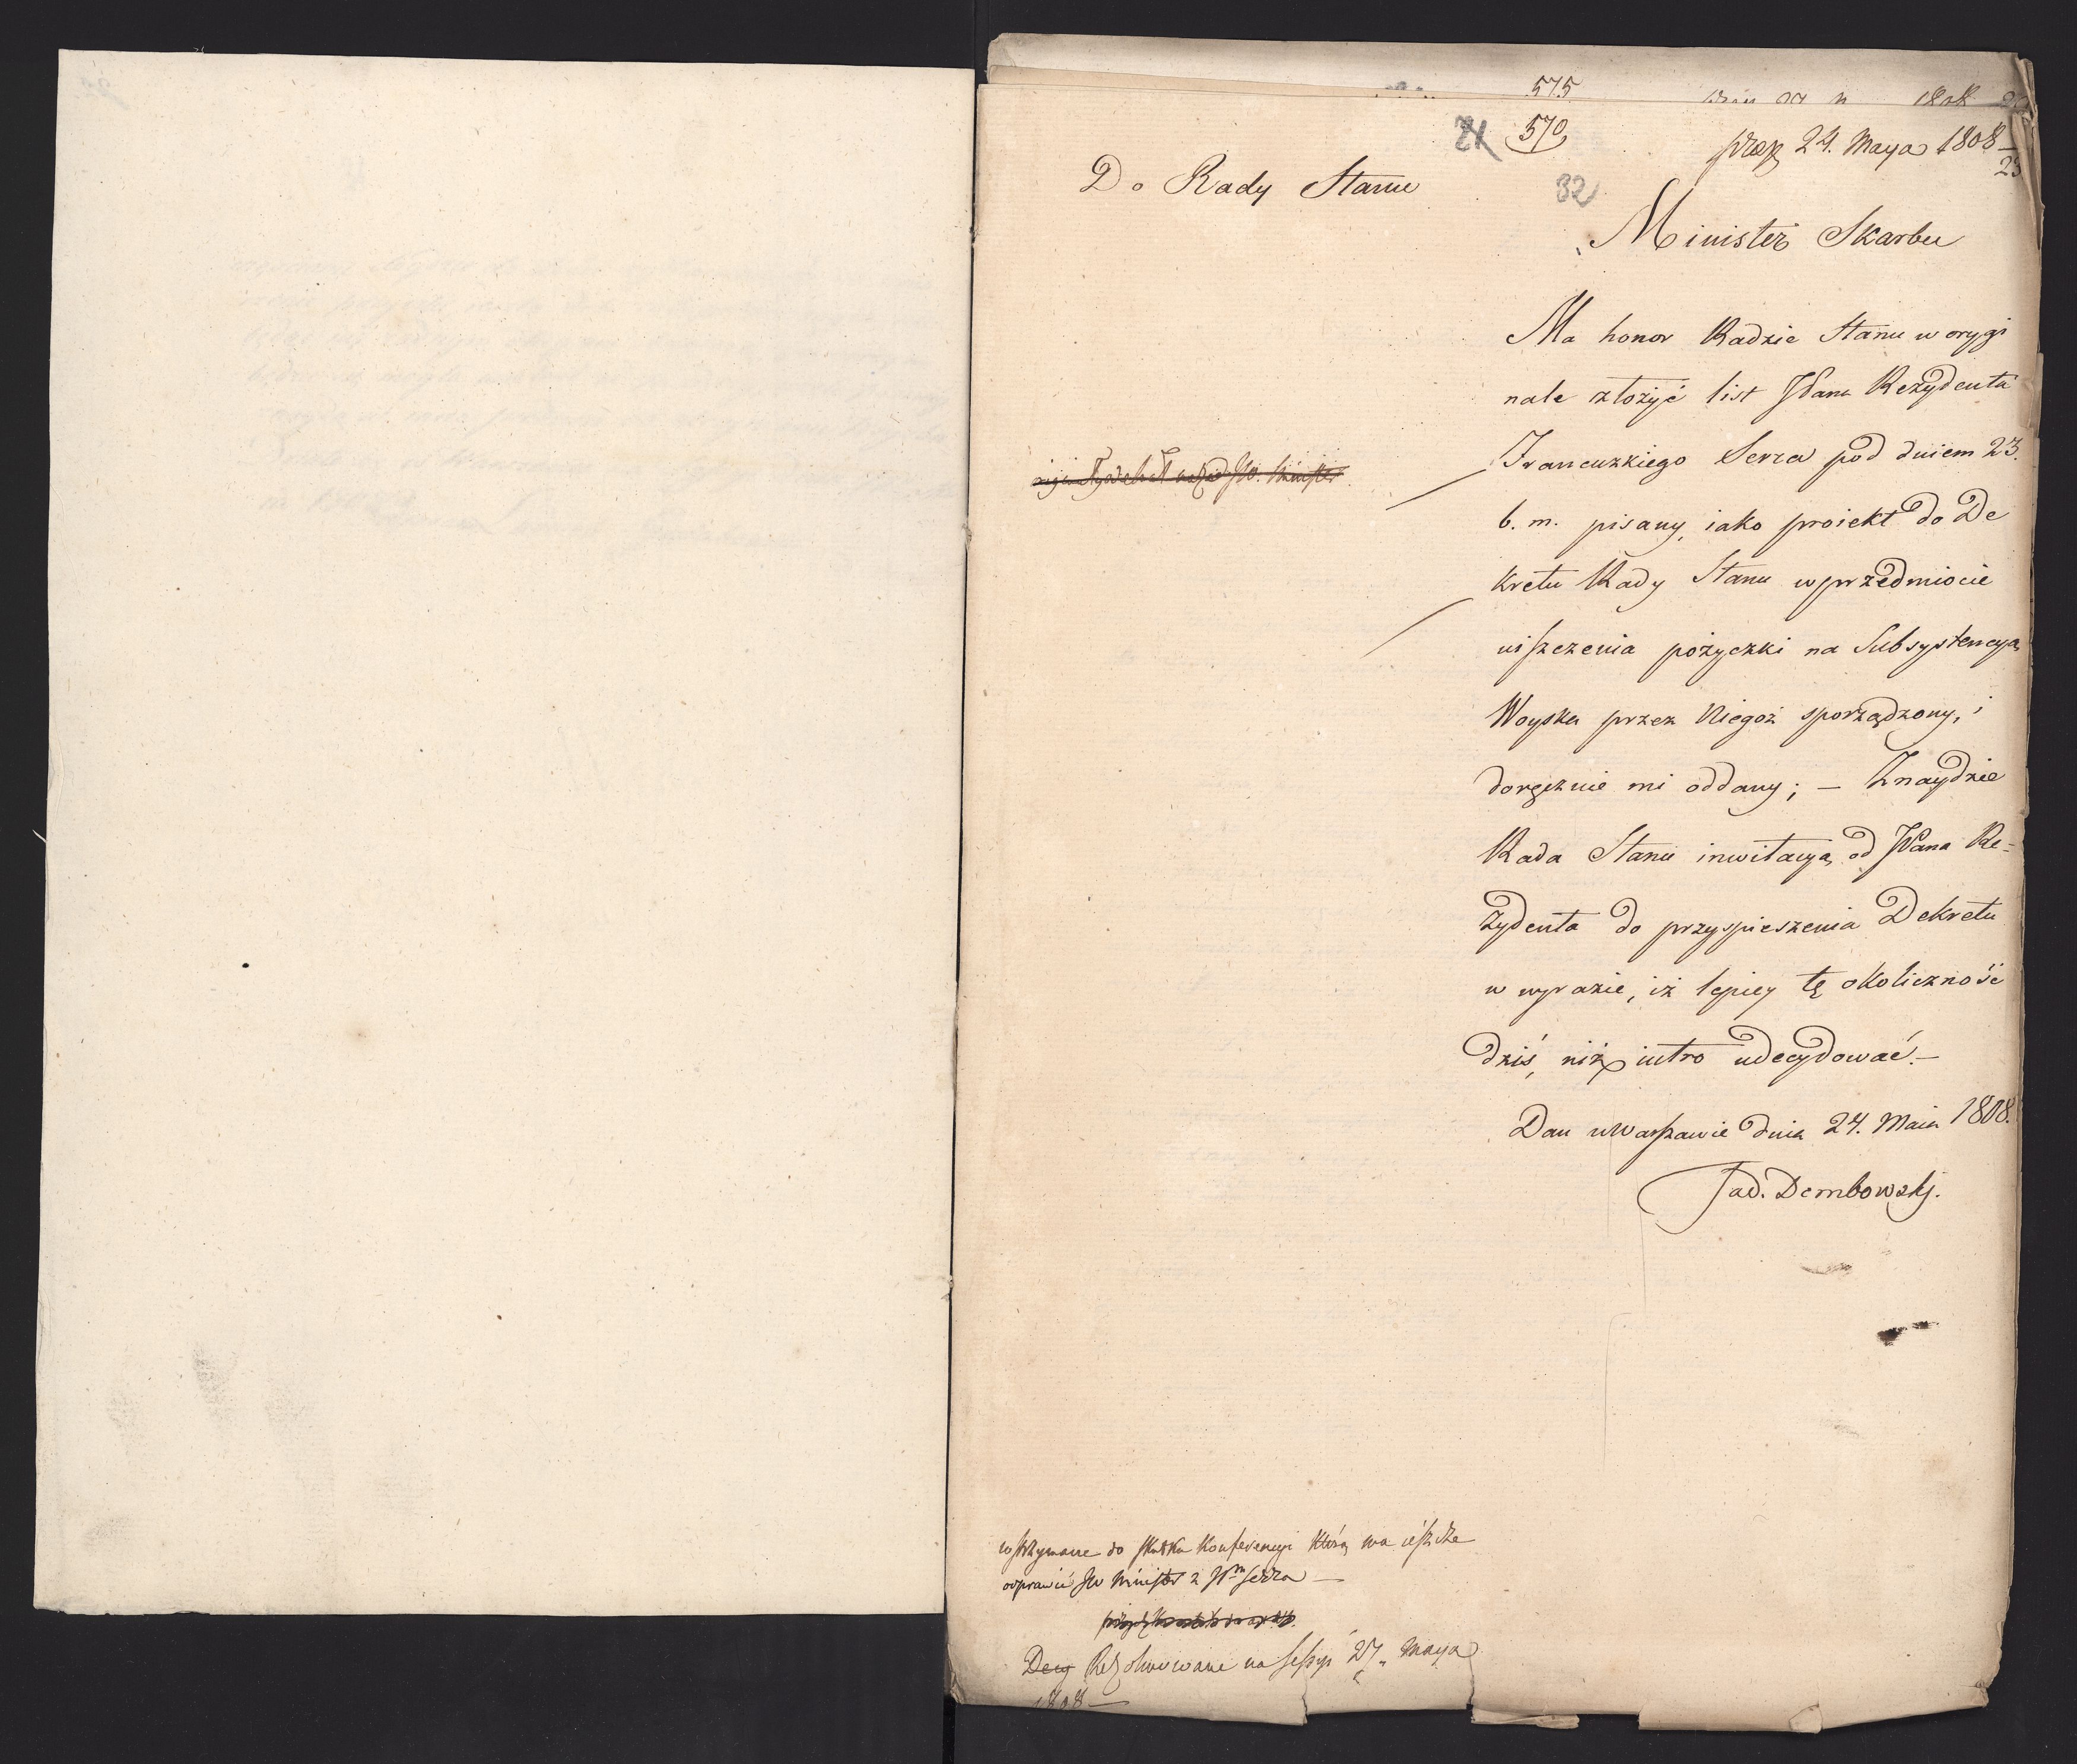 575
570
32
24. Maya 1808
23
Do Rady Stanu
Minister Skarbu
Ma honor Radzie Stanu w orygi
nale złożyć list JPana Rezydenta
Francuzkiego Serra pod dniem 23.
b. m. pisany, iako proiekt do De
kretu Rady Stanu w przedmiocie
uiszczenia pożyczki na Subsystencyą
Woyska przez Niegoż sporządzony, i
doręcznie mi oddany; — Znaydzie
Rada Stanu inwitacyą od JPana Re=
zydenta do przyspieszenia Dekretu
w wyrazie, iż lepiey tę okoliczność
dziś, niż iutro udecydować. —
Dan w Warszawie dnia 24. Maia 1808.
Tad. Dembowskj.
wstrzymane do skutku konferencyi którą ma ieszcze
odprawić JW Minister z Serra —
Decy Rezolwowane na sessyi 27. Maya
1808 —